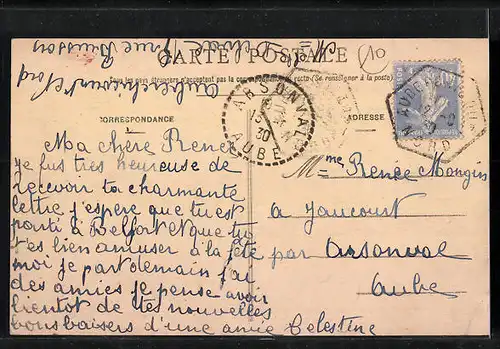 CARTE POSTALE
10
Tous les pays étrangers n'acceptent pas la correspondance au recto (Se renseigner à la poste)
rue Buisson
Nord
CORRESPONDANCE
ADRESSE
ARSONVAL
30
AUBE
NORD
Ma chère Renée
je fus tres heureuse de
recevoir ta charmante
lettre j'espère que tu est
parti à Belfort et que tu
t'es bien amuser à la fête
moi je part demain j'ai
des amies je pense avoir
bientot de tes nouvelles
bons baisers d'une amie Celestine
Mme Renée Mongin
a Jaucourt
par Arsonval
Aube